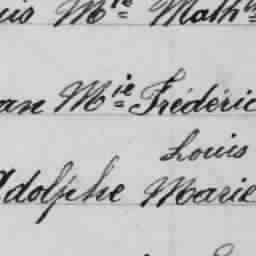 uis Mie Math
an Mie Frédéric
Louis
Adolphe Marie